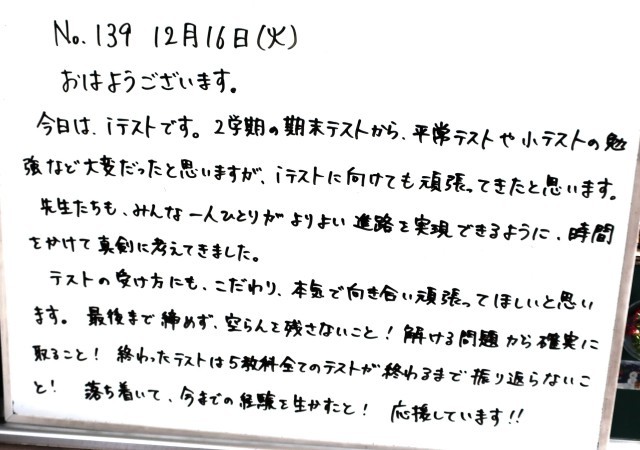 No.139 12月16日(火)
おはようございます。
今日は、iテストです。2学期の期末テストから、平常テストや小テストの勉
強など大変だったと思いますが、iテストに向けても頑張ってきたと思います。
先生たちも、みんな一人ひとりがよりよい進路を実現できるように、時間
をかけて真剣に考えてきました。
テストの受け方にも、こだわり、本気で向き合い頑張ってほしいと思い
ます。最後まで締めず、空らんを残さないこと!解ける問題から確実に
取ること!終わったテストは5教科全てのテストが終わるまで振り返らないこ
と!落ち着いて、今までの経験を生かすと!応援しています!!